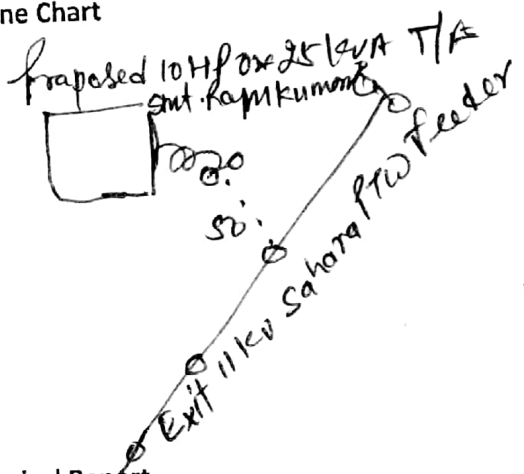 ne Chart
Proposed 10 HP on 25 KVA T/F
Smt. Rajkumari
So:
Exit 11 KV Sahara PTW Feeder